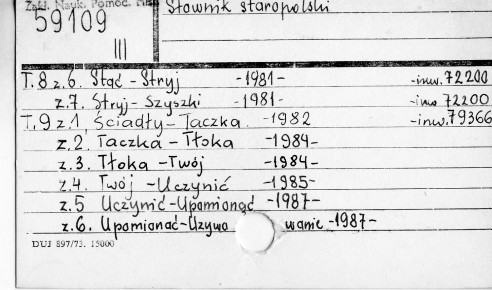 Zakł. Nauk. Pomoc.
Słownik staropolski
59109
III
T.8 z.6. Stać - Stryj -1981- -inw. 72200
z.7. Stryj - Szyszki -1981- -inw 72200
T.9 z.1 Ściadły - Taczka -1982 -inw. 79366
z.2. Taczka - Tłoka -1984-
z.3. Tłoka - Twój -1984-
z.4. Twój - Uczynić -1985-
z.5 Uczynić - Upomionąć -1987-
z.6. Upomianać - Używo wanie -1987-
DUJ 897/73. 15000